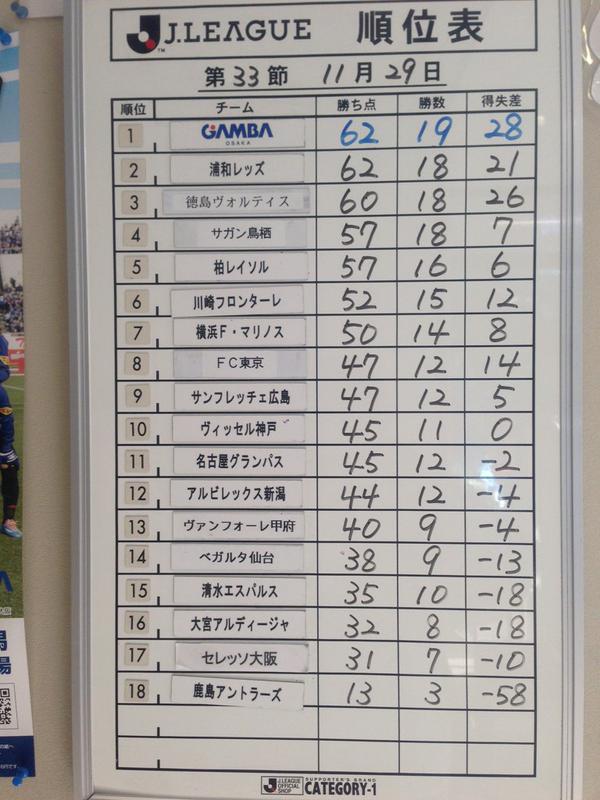 J.LEAGUE 順位表
第33節 11月29日
順位 チーム 勝ち点 勝数 得失差
1 GAMBA OSAKA 62 19 28
2 浦和レッズ 62 18 21
3 徳島ヴォルティス 60 18 26
4 サガン鳥栖 57 18 7
5 柏レイソル 57 16 6
6 川崎フロンターレ 52 15 12
7 横浜F・マリノス 50 14 8
8 FC東京 47 12 14
9 サンフレッチェ広島 47 12 5
10 ヴィッセル神戸 45 11 0
11 名古屋グランパス 45 12 -2
12 アルビレックス新潟 44 12 -4
13 ヴァンフォーレ甲府 40 9 -4
14 ベガルタ仙台 38 9 -13
15 清水エスパルス 35 10 -18
16 大宮アルディージャ 32 8 -18
17 セレッソ大阪 31 7 -10
18 鹿島アントラーズ 13 3 -58
J.LEAGUE OFFICIAL SHOP SUPPORTER'S BRAND CATEGORY-1